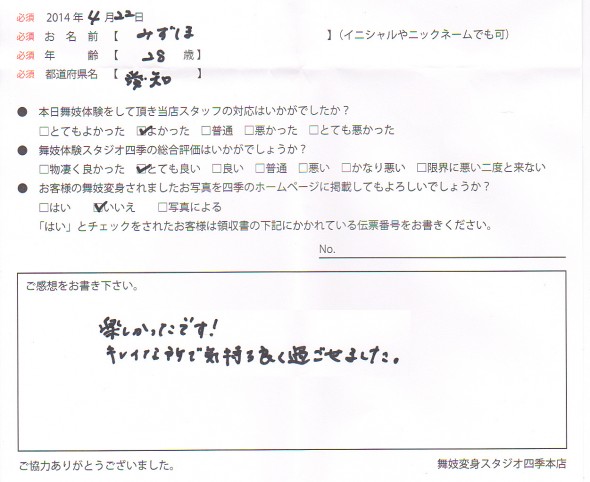 必須 2014年4月22日
必須 お名前【 みずほ 】(イニシャルやニックネームでも可)
必須 年齢【 28 歳】
必須 都道府県名【 愛知 】
● 本日舞妓体験をして頂き当店スタッフの対応はいかがでしたか?
□とてもよかった ☑よかった □普通 □悪かった □とても悪かった
● 舞妓体験スタジオ四季の総合評価はいかがでしょうか?
□物凄く良かった ☑とても良い □良い □普通 □悪い □かなり悪い □限界に悪い二度と来ない
● お客様の舞妓変身されましたお写真を四季のホームページに掲載してもよろしいでしょうか?
□はい ☑いいえ □写真による
「はい」とチェックをされたお客様は領収書の下記にかかれている伝票番号をお書きください。
No.
ご感想をお書き下さい。
楽しかったです!
キレイな所で気持ち良く過ごせました。
ご協力ありがとうございました。
舞妓変身スタジオ四季本店